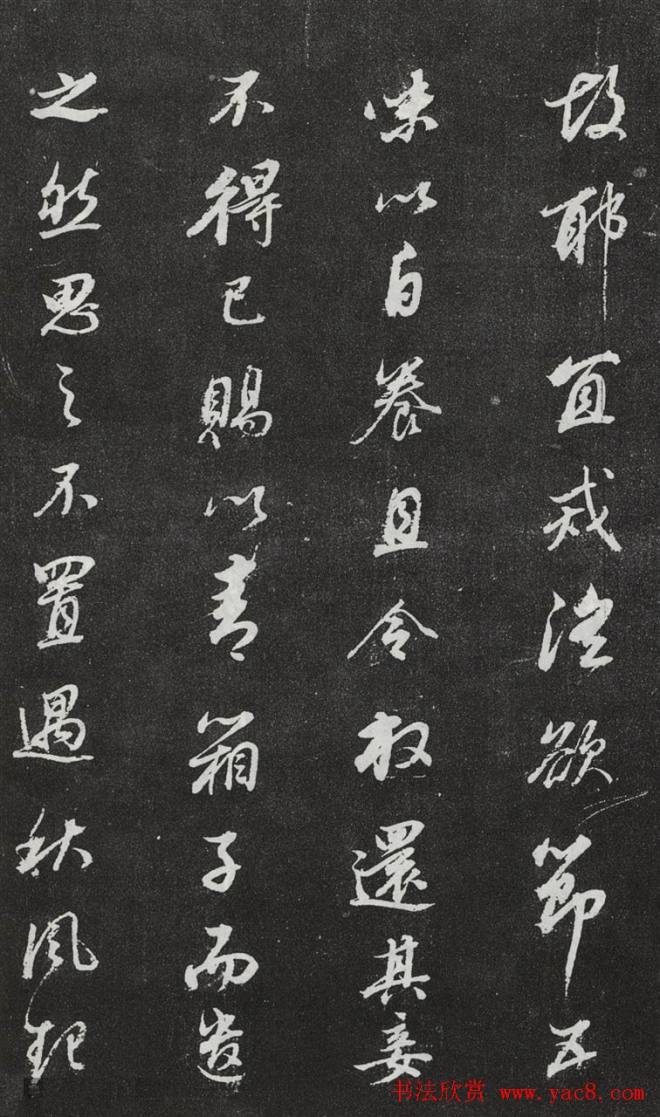 故耶宜戒淫欲節五
味以自养且令放還其妾
不得已賜以青箱子而遣
之然思之不置遇秋风起
书法欣赏 www.yac8.com